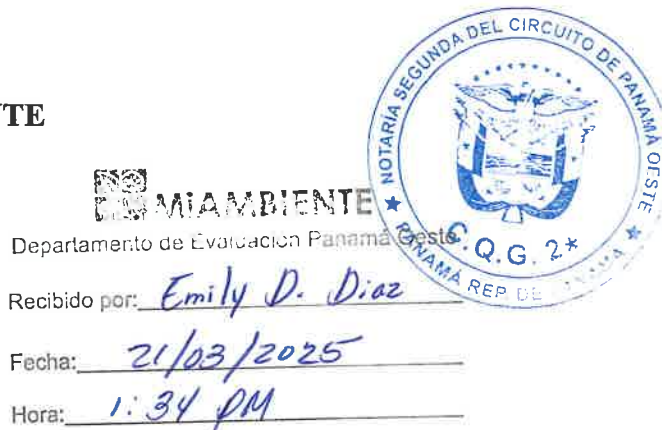 NTE
NOTARÍA SEGUNDA DEL CIRCUITO DE PANAMÁ OESTE
C.Q.G. 2*
PANAMÁ REP. DE
MiAMBIENTE
Departamento de Evaluación Panamá Oeste
Recibido por: Emily D. Diaz
Fecha: 21/03/2025
Hora: 1:34 PM